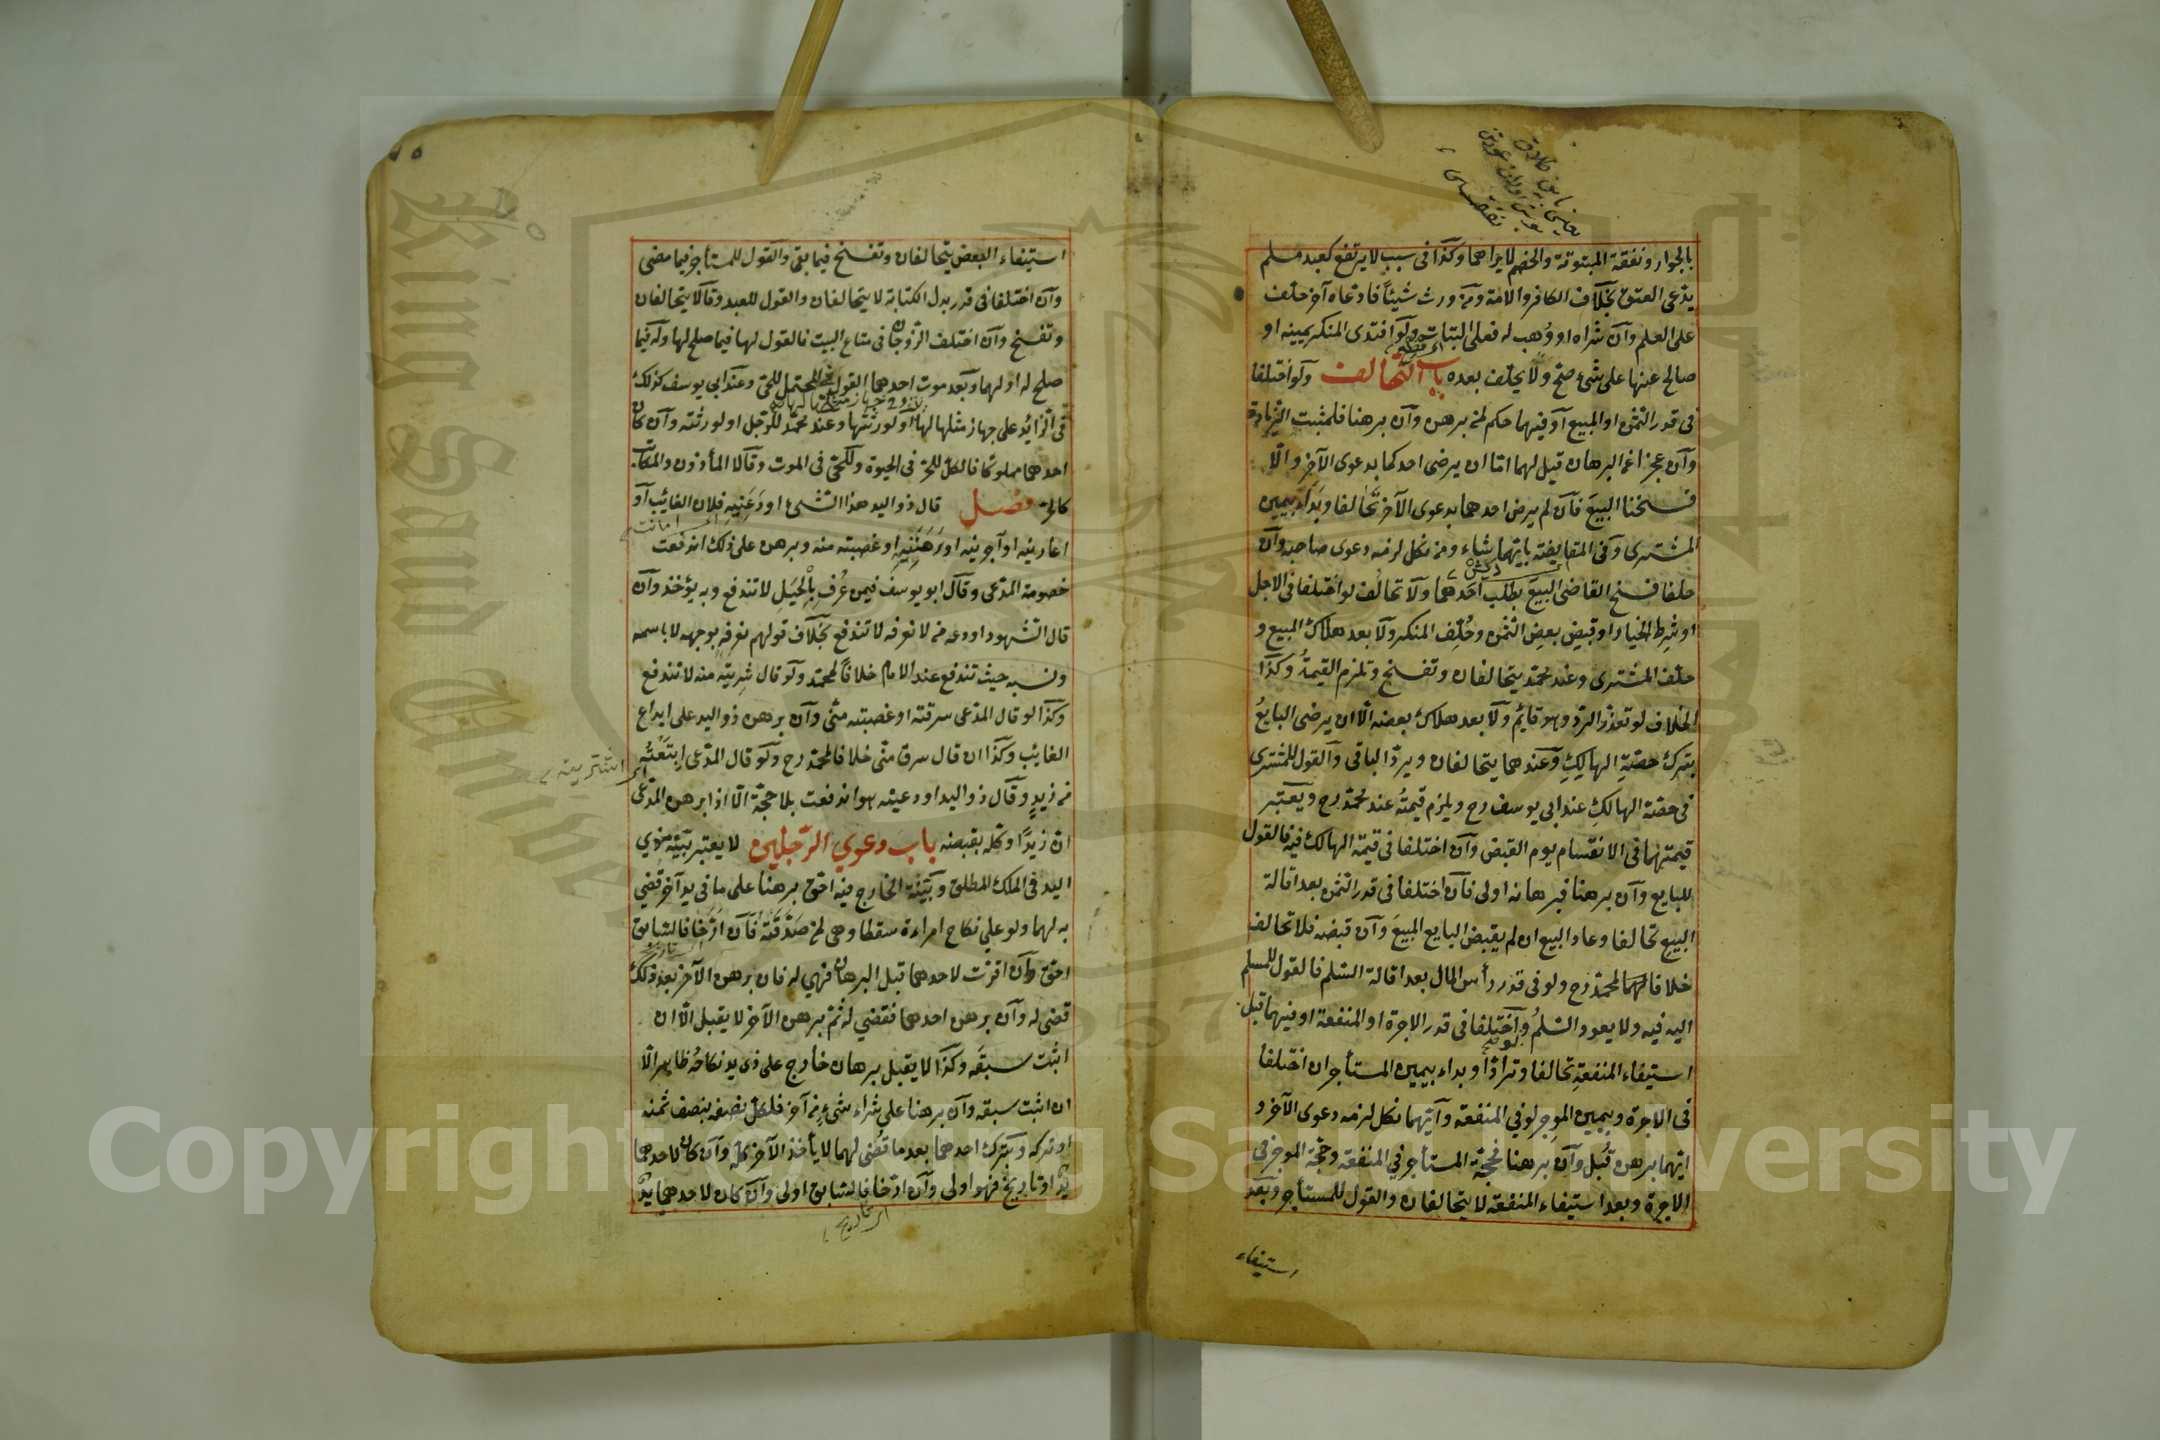 بالجوار ونفقة المبتوتة والخصم لا يراهما وكذا فى سبب لا يرتفع كعبد مسلم
يدعى العتق بخلاف الكافر والامة ومن ورث شيئا فادعاه آخر حلف
على العلم وان شراه او وُهب له فعلى البتات ولو افتدى المنكر يمينه او
صالح عنها على شئ صح ولا يحلف بعده باب التحالف ولو اختلفا
فى قدر الثمن او المبيع او فيهما حكم لمن برهن وان برهنا فلمثبت الزيادة
وان عجزا عن البرهان قيل لهما اما ان يرضى احدكما بدعوى الآخر والا
فسخنا البيع فان لم يرض احدهما بدعوى الآخر تحالفا وبدأ بيمين
المشترى وفى المقايضة بايهما شاء ومن نكل لزمه دعوى صاحبه وان
حلفا فسخ القاضى البيع بطلب احدهما ولا تحالف لو اختلفا فى الاجل
او شرط الخيار او قبض بعض الثمن وحُلّف المنكر ولا بعد هلاك المبيع و
حلف المشترى وعند محمد يتحالفان وتفسخ وتلزم القيمةُ وكذا
الخلاف لو تعذر الرد وهو قائم ولا بعد هلاك بعضه الا ان يرضى البايعُ
بترك حصةِ الهالكِ وعندهما يتحالفان ويرد الباقى والقول للمشترى
فى حصة الهالكِ عند ابى يوسف رح ويلزم قيمتهُ عند محمد رح ويعتبر
قيمتهما فى الانقسام يوم القبض وان اختلفا فى قيمة الهالك فيه فالقول
للبايع وان برهنا فبرهانه اولى فان اختلفا فى قدر الثمن بعد اقالة
البيع تحالفا وعاد البيع ان لم يقبض البايع المبيعَ وان قبضه فلا تحالف
خلافا لمحمد رح ولو فى قدر رأس المال بعد اقالة السلم فالقول للمسلم
اليه فيه ولا يعود السلمُ ولو اختلفا فى قدر الاجرة او المنفعة او فيهما قبل
استيفاء المنفعةِ تحالفا وترادّا وبداء بيمين المستأجر ان اختلفا
فى الاجرة وبيمين الموجر لو فى المنفعة وايهما نكل لزمه دعوى الآخر و
ايهما برهن قُبل وان برهنا فحجة المستأجر فى المنفعة وحجة الموجر فى
الاجرة وبعد استيفاء المنفعة لا يتحالفان والقول للمستأجر وبعد
استيفاء
استيفاء البعض يتحالفان وتفسخ فيما بقى والقول للمستأجر فيما مضى
وان اختلفا فى قدر بدل الكتابة لا يتحالفان والقول للعبد وقالا يتحالفان
وتفسخ وان اختلف الزوجان فى متاع البيت فالقول لها فيما صلح لها وله فيما
صلح له او لهما وبعد موت احدهما القول فى المحتمل للحى وعند ابى يوسف كذلك
فى الزائد على جهاز مثلها لها او لورثتها وعند محمد للرجل او لورثته وان كان
احدهما مملوكا فالكل للحر فى الحيوة وللحى فى الموت وقالا المأذون والمكاتب
كالحر فصل قال ذو اليد هذا الشئ اودَعَنِيهِ فلان الغائب او
اعارنيه او آجرنيه او رَهَنَنِيهِ او غصبته منه وبرهن على ذلك اندفعت
خصومة المدعى وقال ابو يوسف فيمن عُرِف بالحِيَلِ لا تندفع وبه يؤخذ وان
قال الشهود اودعه من لا نعرفه لا تندفع بخلاف قولهم نعرفه بوجهه لا باسمه
ونسبه حيث تندفع عند الامام خلافاً لمحمد ولو قال شريته منه لا تندفع
وكذا لو قال المدعى سرقته او غصبته منى وان برهن ذو اليد على ايداع
الغائب وكذا ان قال سرق منى خلافا لمحمد رح ولو قال المدعى ابتعتُه
من زيدٍ وقال ذو اليد اودعنيه هو اندفعت بلا حجة الا اذا برهن المدعى
ان زيدًا وكله بقبضه باب دعوي الرجلين لا يعتبر بيّنة ذي
اليد فى الملك المطلق وبيّنة الخارج فيه احق برهنا على ما فى يد آخر قضي
به لهما ولو علي نكاح امراءة سقطا وهى لمن صَدَّقَتْه فان ارّخا فالسابق
احق وان اقرت لاحدهما قبل البرهان فهي له فان برهن الآخر بعد ذلك
قضى له وان برهن احدهما فقضي له ثم برهن الآخر لا يقبل الا ان
اثبت سبقَه وكذا لا يقبل برهان خارج على ذى يد نكاحُه ظاهر الا
ان اثبت سبقه وان برهنا علي شراء شىءٍ من آخر فلكل نصفه بنصف ثمنه
او تركه وبترك احدهما بعد ما قُضى لهما لا يأخذ الآخر كله وان كان لاحدهما
يد او تاريخ فهو اولى وان ارّخا فالسابق اولى وان كان لاحدهما يد
King Saud University
1957
Copyright © King Saud University